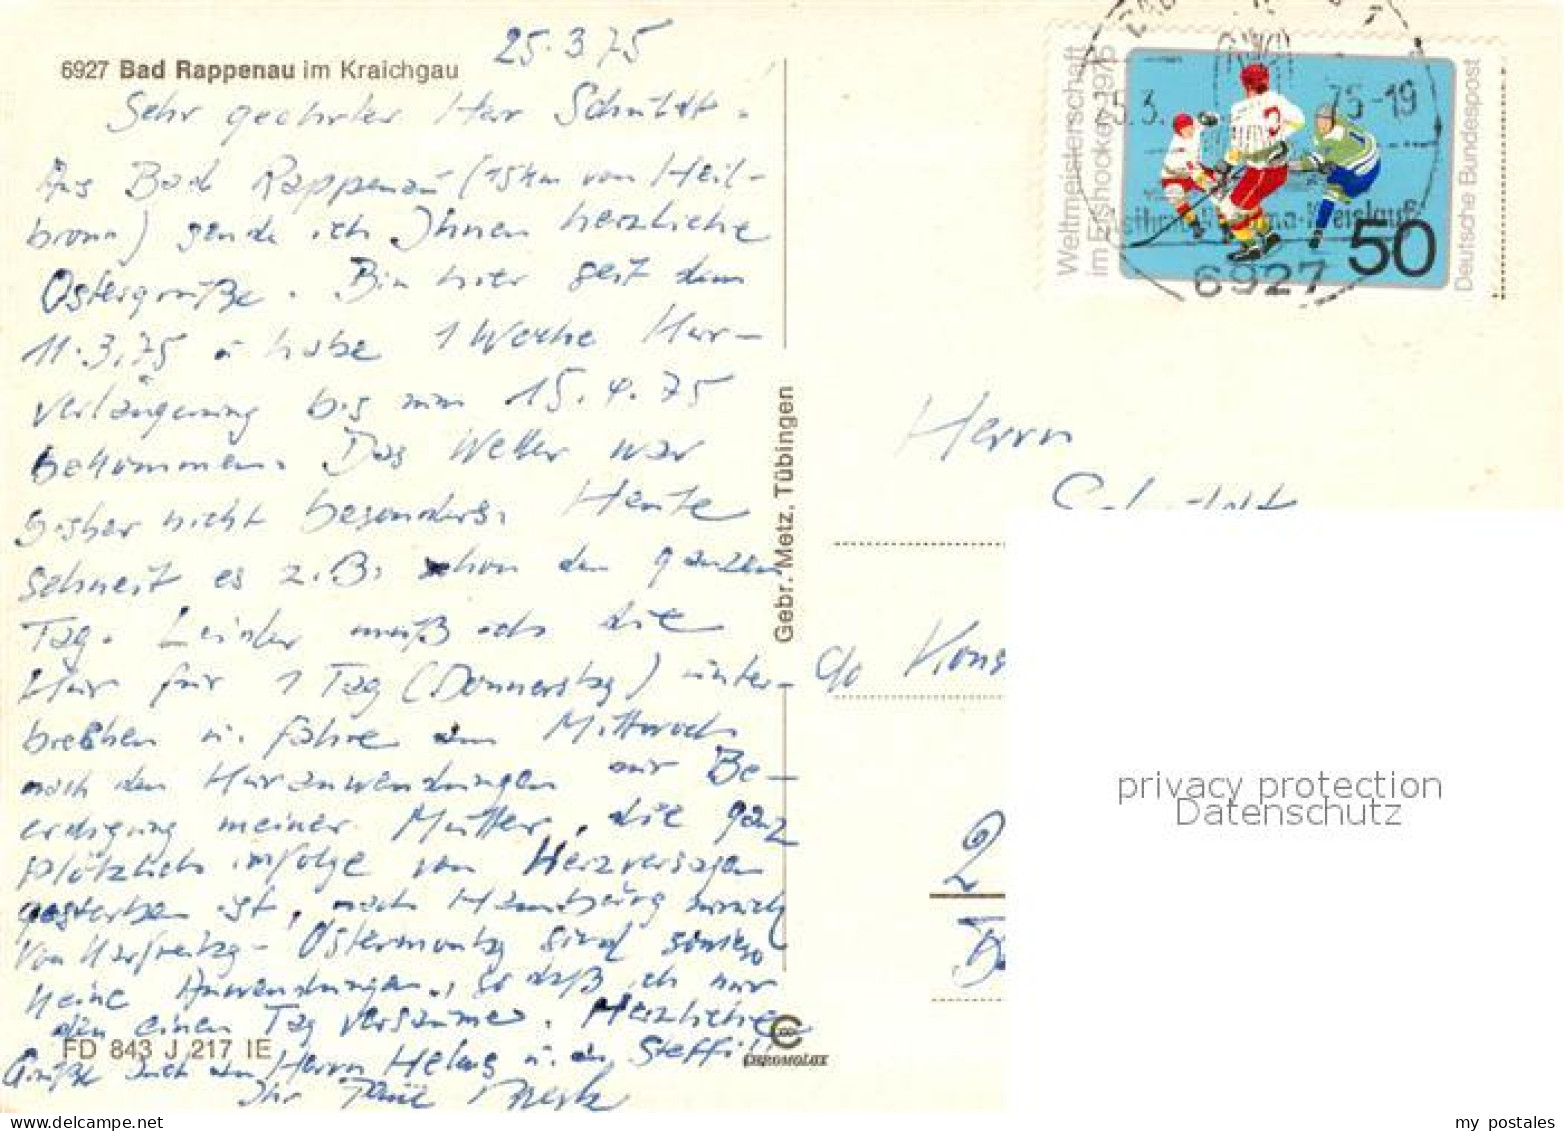 25.3.75
6927 Bad Rappenau im Kraichgau
Sehr geehrter Herr Schmidt.
Aus Bad Rappenau (15 km von Heil-
bronn) sende ich Ihnen herzliche
Ostergrüße. Bin hier seit dem
11.3.75 u. habe 1 Woche Kur-
verlängerung bis zum 15.4.75
bekommen. Das Wetter war
bisher nicht besonders. Heute
schneit es z.B. schon den ganzen
Tag. Leider muß ich die
Kur für 1 Tag (Donnerstag) unter-
brechen u. fahre am Mittwoch
nach den Kuranwendungen zur Be-
erdigung meiner Mutter, die ganz
plötzlich infolge von Herzversagen
gestorben ist, nach Hamburg zurück
Von Karfreitag - Ostermontag sind sowieso
keine Anwendungen, so daß ich nur
den einen Tag versäume. Herzliche
Grüße auch an Herrn u. an Steffi!!
Ihr
FD 843 J 217 IE
Gebr. Metz, Tübingen
CHROMOLUX
Weltmeisterschaft
im Eishockey 1975
Deutsche Bundespost
50
25.3.75-19
6927
Herrn
c/o Kons
2
privacy protection
Datenschutz
my postales